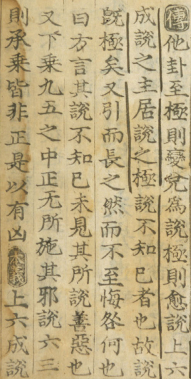 傳他卦至極則變兌為說極則愈說上六
成說之主居說之極說不知已者也故說
旣極矣又引而長之然而不至悔咎何也
曰方言其說不知已未見其所說善惡也
又下乘九五之中正无所施其邪說六三
則承乘皆非正是以有凶本義上六成說